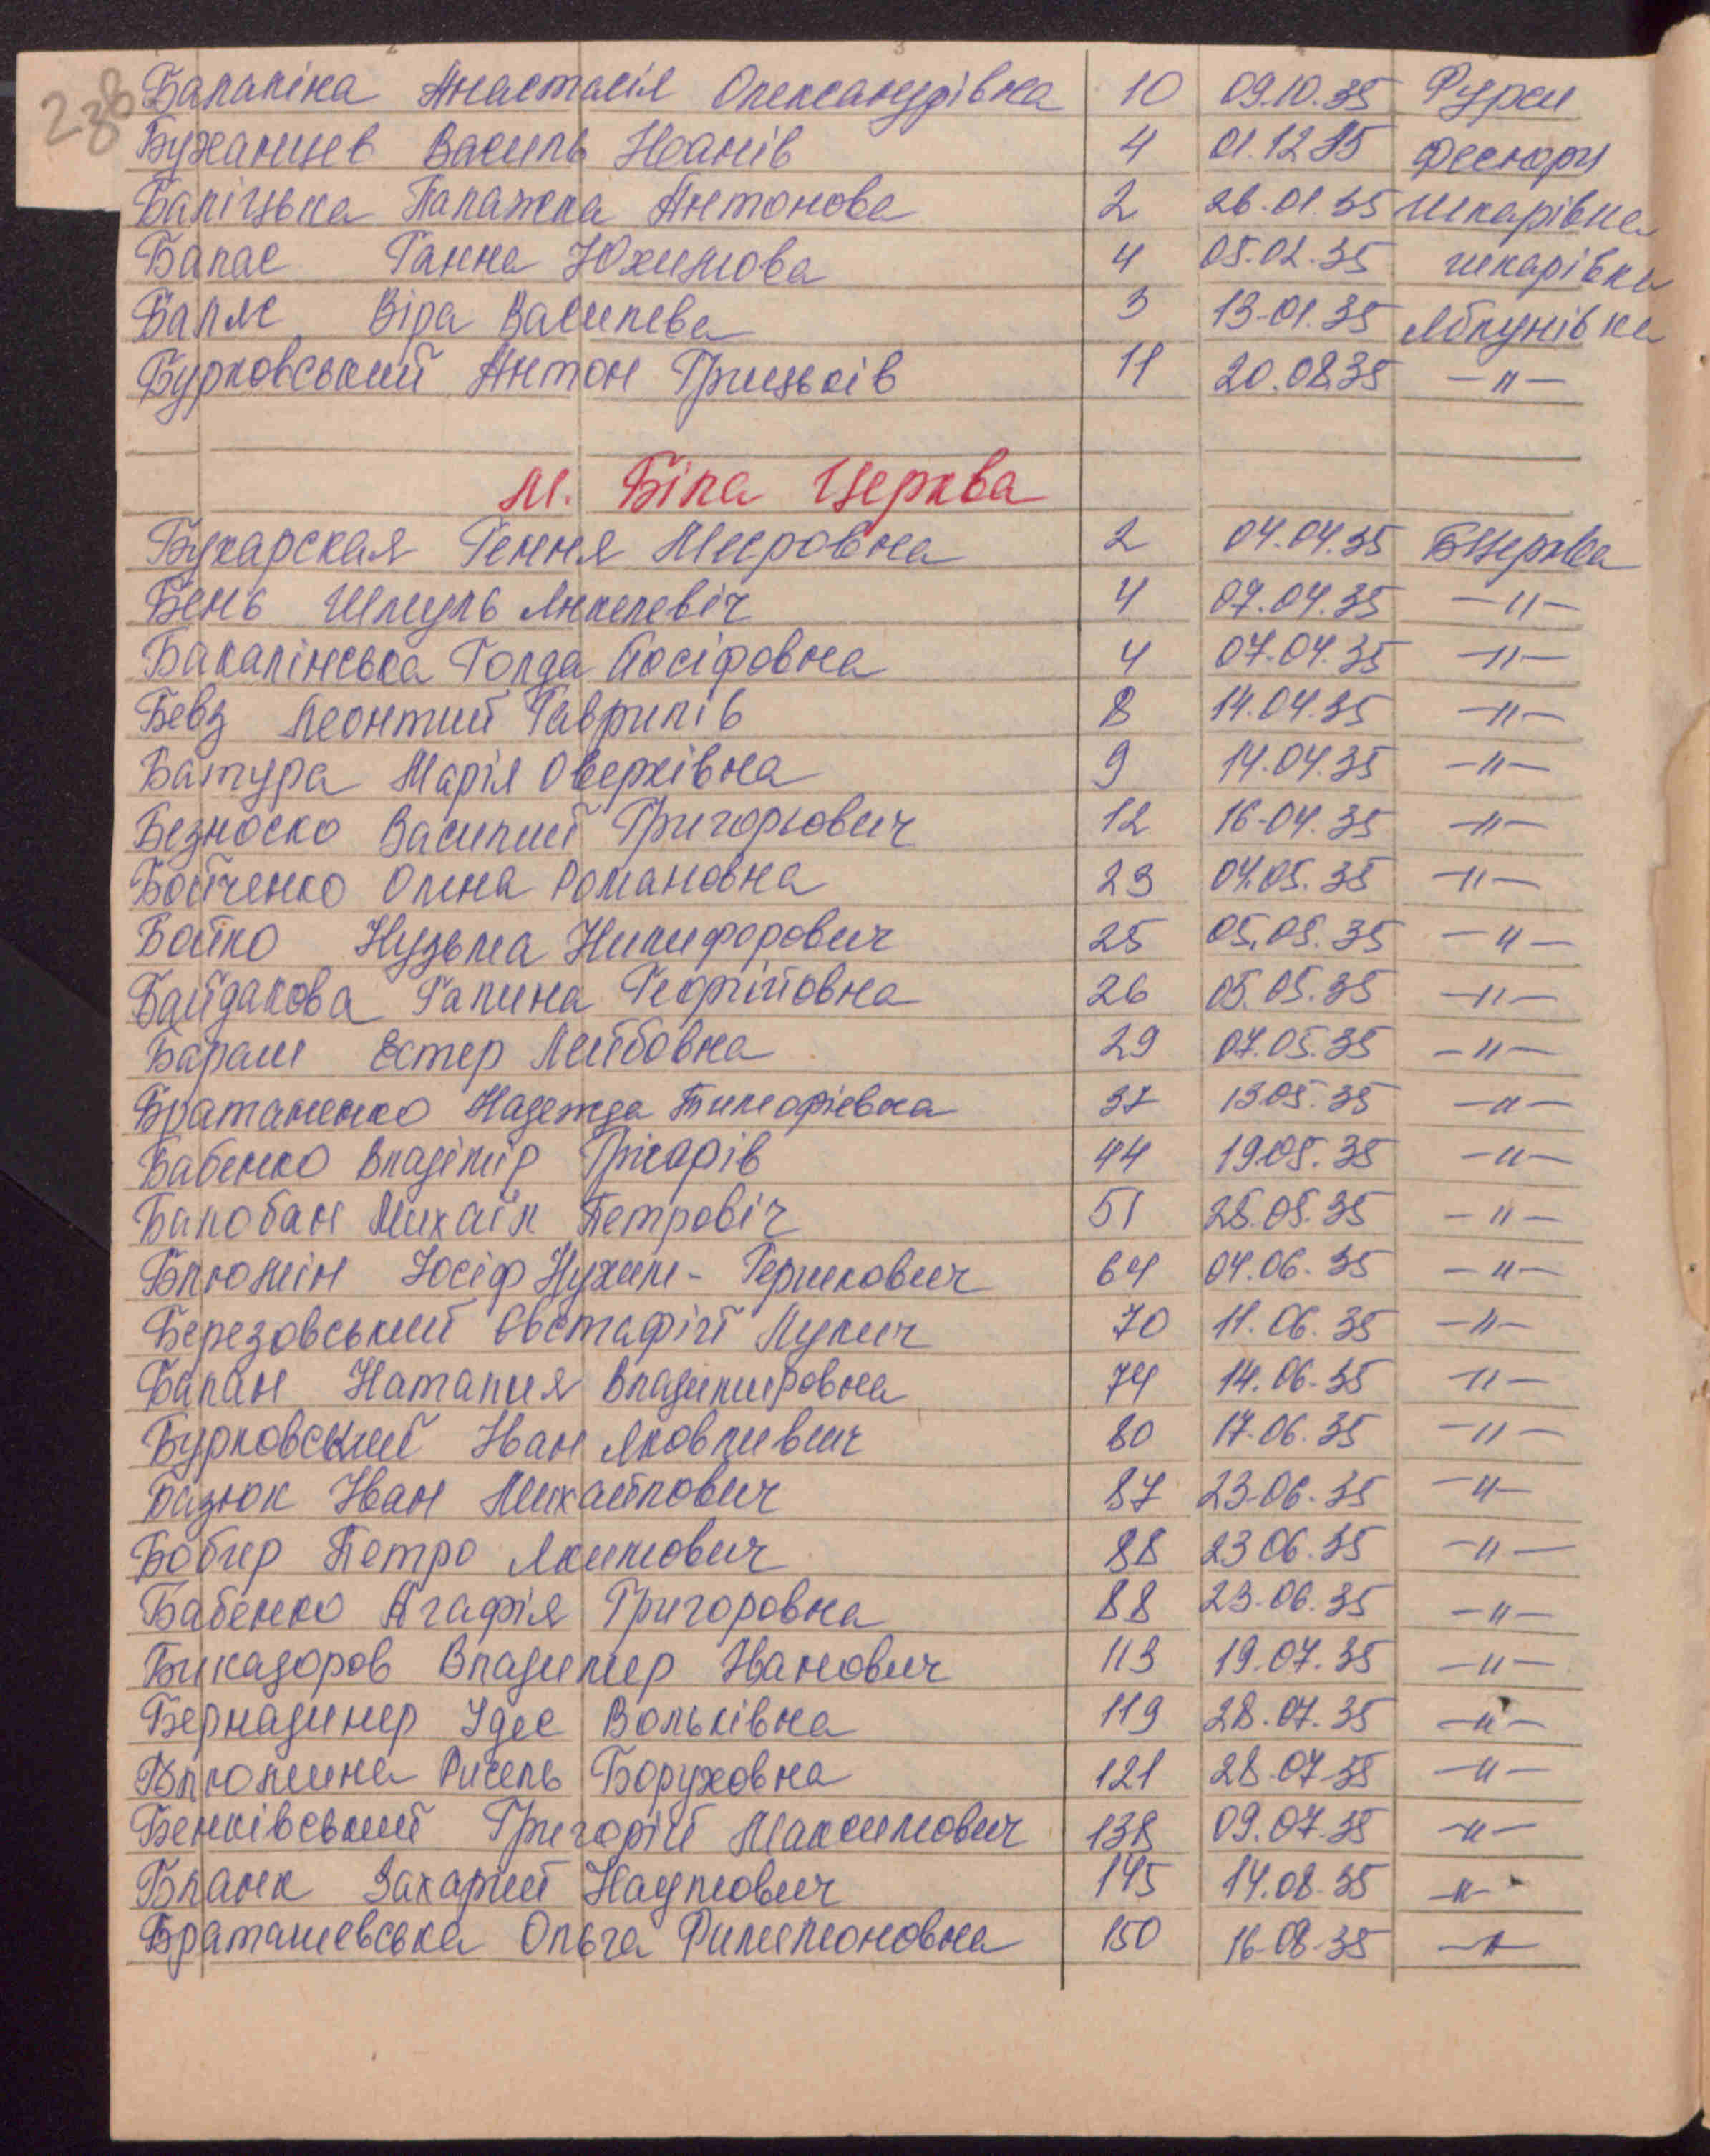 2 3 4
238
Балалiка Анастасія Олександрівна 10 09.10.35 Фурси
Бужанцев Василь Іванів 4 01.12 35
Баліцька Палажка Антонова 2 26.01.35 Шкарівка
Балас Ганна Юхимова 4 05.02.35 Шкарівка
Віра Васильева 3 13.01.35 Яблунівка
Бурковський Антон Грицьків 11 20.08.35 -"-
м. Біла Церква
Бухарская Гення Мееровна 2 04.04.35 БЦерква
Бень Шмуль Янкелевіч 4 07.04.35 -"-
Бакалінська Голда Йосіфовна 4 07.04.35 -"-
Бевз Леонтий Гаврилів 8 14.04.35 -"-
Батура Марія Оверківна 9 14.04.35 -"-
Безноско Василий Григорьович 12 16.04.35 -"-
Бойченко Олена Романовна 23 04.05.35 -"-
Бойко Кузьма Никифорович 25 05.05.35 -"-
Байдакова Галина Георгійовна 26 05.05.35 -"-
Бараш Естер Лейбовна 29 07.05.35 -"-
Братаненко Надежда Тимофіевна 37 13.05.35 -"-
Бабенко Владімір Грігорів 44 19.05.35 -"-
Балобан Михаїл Петровіч 51 25.05.35 -"-
Блюмін Йосіф Нухим-Гершкович 64 04.06.35 -"-
Березовський Євстафій Лукич 70 11.06.35 -"-
Балан Наталия Владимировна 74 14.06.35 -"-
Бурковский Іван Яковливич 80 17.06.35 -"-
Базюк Іван Михайлович 87 23.06.35 -"-
Бобир Петро Якимович 88 23.06.35 -"-
Бабенко Агафія Григоровна 88 23.06.35 -"-
Бикадоров Владимер Іванович 113 19.07.35 -"-
Бернадинер Удес Вольківна 119 28.07.35 -"-
Блюмина Рисель Боруховна 121 28.07.35 -"-
Бенківський Григорій Максимович 138 09.07.35 -"-
Бланк Захарий Наумович 145 14.08.35 -"-
Браташевська Ольга Филимоновна 150 16.08.35 -"-